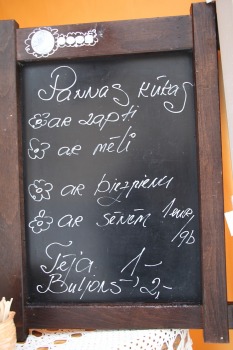 Pannas kūkas
ar zapti
ar mēli
ar biezpienu
ar sēnēm 1 euro/gb
Tēja 1,-
Buljons 2,-